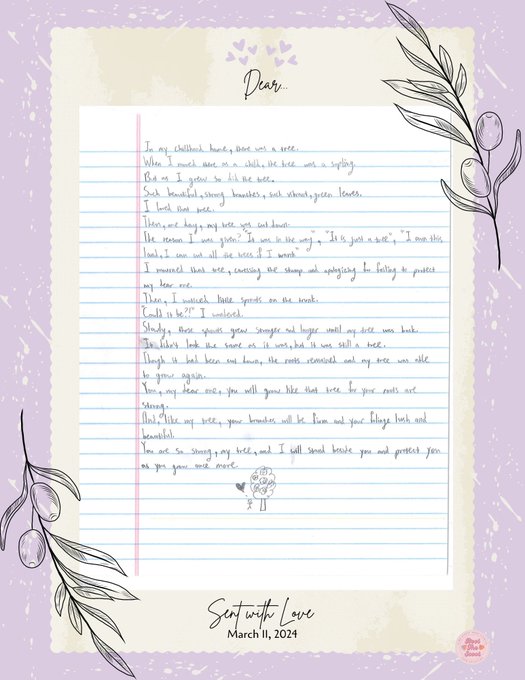 Dear...
In my childhood home, there was a tree.
When I moved there as a child, the tree was a sapling.
But as I grew so did the tree.
Such beautiful, strong branches, such vibrant, green leaves.
I loved that tree.
Then, one day, my tree was cut down.
The reason I was given? "It was in the way", "It is just a tree", "I own this
land, I can cut all the trees if I want"
I mourned that tree, caressing the stump and apologizing for failing to protect
my dear one.
Then, I noticed little sprouts on the trunk.
"Could it be??" I wondered.
Slowly, those sprouts grew stronger and larger until my tree was back.
It didn't look the same as it was, but it was still a tree.
Though it had been cut down, the roots remained and my tree was able
to grow again.
You, my dear one, you will grow like that tree for your roots are
strong.
And, like my tree, your branches will be firm and your foliage lush and
beautiful.
You are so strong, my tree, and I will stand beside you and protect you
as you grow once more.
Sent with Love
March 11, 2024